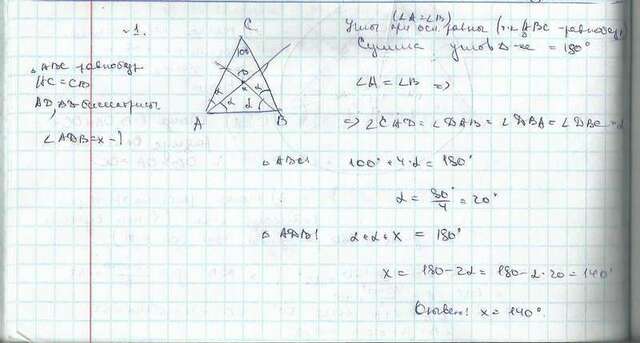 №1.
△ABC равнобедр
AC = CB
AD, BD биссектрисы
∠ADB = x - ?
C
100
D
x
α α
α α
A B
(∠A = ∠B)
Углы при осн. равны (т.к. △ABC - равнобедр)
Сумма углов △-ка = 180°
∠A = ∠B =>
=> ∠CAD = ∠DAB = ∠DBA = ∠DBC = α
△ABC: 100° + 4·α = 180°
α = 80°/4 = 20°
△ADB: α + α + x = 180°
x = 180 - 2α = 180 - 2·20 = 140°
Ответ: x = 140°.